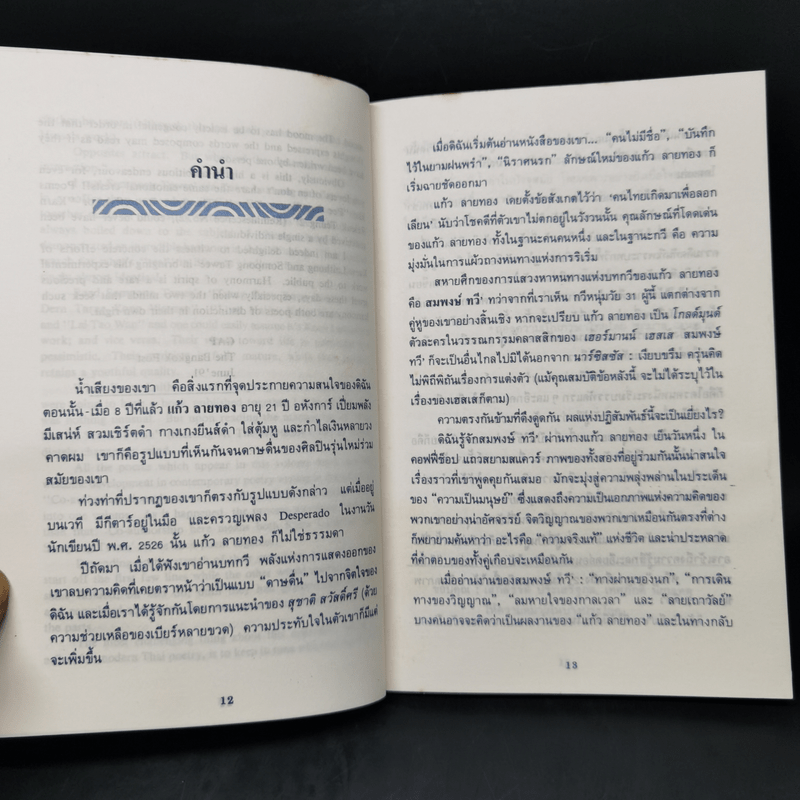 คำนำ
น้ำเสียงของเขา คือสิ่งแรกที่จุดประกายความสนใจของดิฉัน
ตอนนั้น-เมื่อ 8 ปีที่แล้ว แก้ว ลายทอง อายุ 21 ปี อหังการ์ เปี่ยมพลัง
มีเสน่ห์ สวมเชิร์ตดำ กางเกงยีนส์ดำ ใส่ตุ้มหู และกำไลเงินหลายวง
คาดผม เขาคือรูปแบบที่เห็นกันจนดาษดื่นของศิลปินรุ่นใหม่ร่วม
สมัยของเขา
ท่วงท่าที่ปรากฏของเขาก็ตรงกับรูปแบบดังกล่าว แต่เมื่ออยู่
บนเวที มีกีตาร์อยู่ในมือ และครวญเพลง Desperado ในงานวัน
นักเขียนปี พ.ศ. 2526 นั้น แก้ว ลายทอง ก็ไม่ใช่ธรรมดา
ปีถัดมา เมื่อได้ฟังเขาอ่านบทกวี พลังแห่งการแสดงออกของ
เขาลบความคิดที่เคยตราหน้าว่าเป็นแบบ “ดาษดื่น” ไปจากจิตใจของ
ดิฉัน และเมื่อเราได้รู้จักกันโดยการแนะนำของ สุชาติ สวัสดิ์ศรี (ด้วย
ความช่วยเหลือของเบียร์หลายขวด) ความประทับใจในตัวเขาก็มีแต่
จะเพิ่มขึ้น
12
เมื่อดิฉันเริ่มต้นอ่านหนังสือของเขา... “คนไม่มีชื่อ”, “บันทึก
ไว้ในยามฝนพรำ”, “นิราศนรก” ลักษณ์ใหม่ของแก้ว ลายทอง ก็
เริ่มฉายชัดออกมา
แก้ว ลายทอง เคยตั้งข้อสังเกตไว้ว่า ‘คนไทยเกิดมาเพื่อลอก
เลียน’ นับว่าโชคดีที่ตัวเขาไม่ตกอยู่ในวังวนนั้น คุณลักษณ์ที่โดดเด่น
ของแก้ว ลายทอง ทั้งในฐานะคนคนหนึ่ง และในฐานะกวี คือ ความ
มุ่งมั่นในการแผ้วถางหนทางแห่งการริเริ่ม
สหายศึกของการแสวงหาหนทางแห่งบทกวีของแก้ว ลายทอง
คือ สมพงษ์ ทวี’ ทว่าจากที่เราเห็น กวีหนุ่มวัย 31 ผู้นี้ แตกต่างจาก
คู่หูของเขาอย่างสิ้นเชิง หากจะเปรียบ แก้ว ลายทอง เป็น โกลด์มุนด์
ตัวละครในวรรณกรรมคลาสสิกของ เฮอร์มานน์ เฮสเส สมพงษ์
ทวี’ ก็จะเป็นอื่นไกลไปมิได้นอกจาก นาร์ซิสซัส : เงียบขรึม ครุ่นคิด
ไม่พิถีพิถันเรื่องการแต่งตัว (แม้คุณสมบัติข้อหลังนี้ จะไม่ได้ระบุไว้ใน
เรื่องของเฮสเสก็ตาม)
ความตรงกันข้ามที่ดึงดูดกัน ผลแห่งปฏิสัมพันธ์นี้จะเป็นเยี่ยงไร?
ดิฉันรู้จักสมพงษ์ ทวี’ ผ่านทางแก้ว ลายทอง เย็นวันหนึ่ง ใน
คอฟฟี่ช็อป แถวสยามสแควร์ ภาพของทั้งสองที่อยู่ร่วมกันนั้นน่าสนใจ
เรื่องราวที่เขาพูดคุยกันเสมอ มักจะมุ่งสู่ความพลุ่งพล่านในประเด็น
ของ “ความเป็นมนุษย์” ซึ่งแสดงถึงความเป็นเอกภาพแห่งความคิดของ
พวกเขาอย่างน่าอัศจรรย์ จิตวิญญาณของพวกเขาเหมือนกันตรงที่ต่าง
ก็พยายามค้นหาว่า อะไรคือ “ความจริงแท้” แห่งชีวิต และน่าประหลาด
ที่คำตอบของทั้งคู่เกือบจะเหมือนกัน
เมื่ออ่านงานของสมพงษ์ ทวี’ : “ทางผ่านของนก”, “การเดิน
ทางของวิญญาณ”, “ลมหายใจของกาลเวลา” และ “ลายเถาวัลย์”
บางคนอาจจะคิดว่าเป็นผลงานของ “แก้ว ลายทอง” และในทางกลับ
13